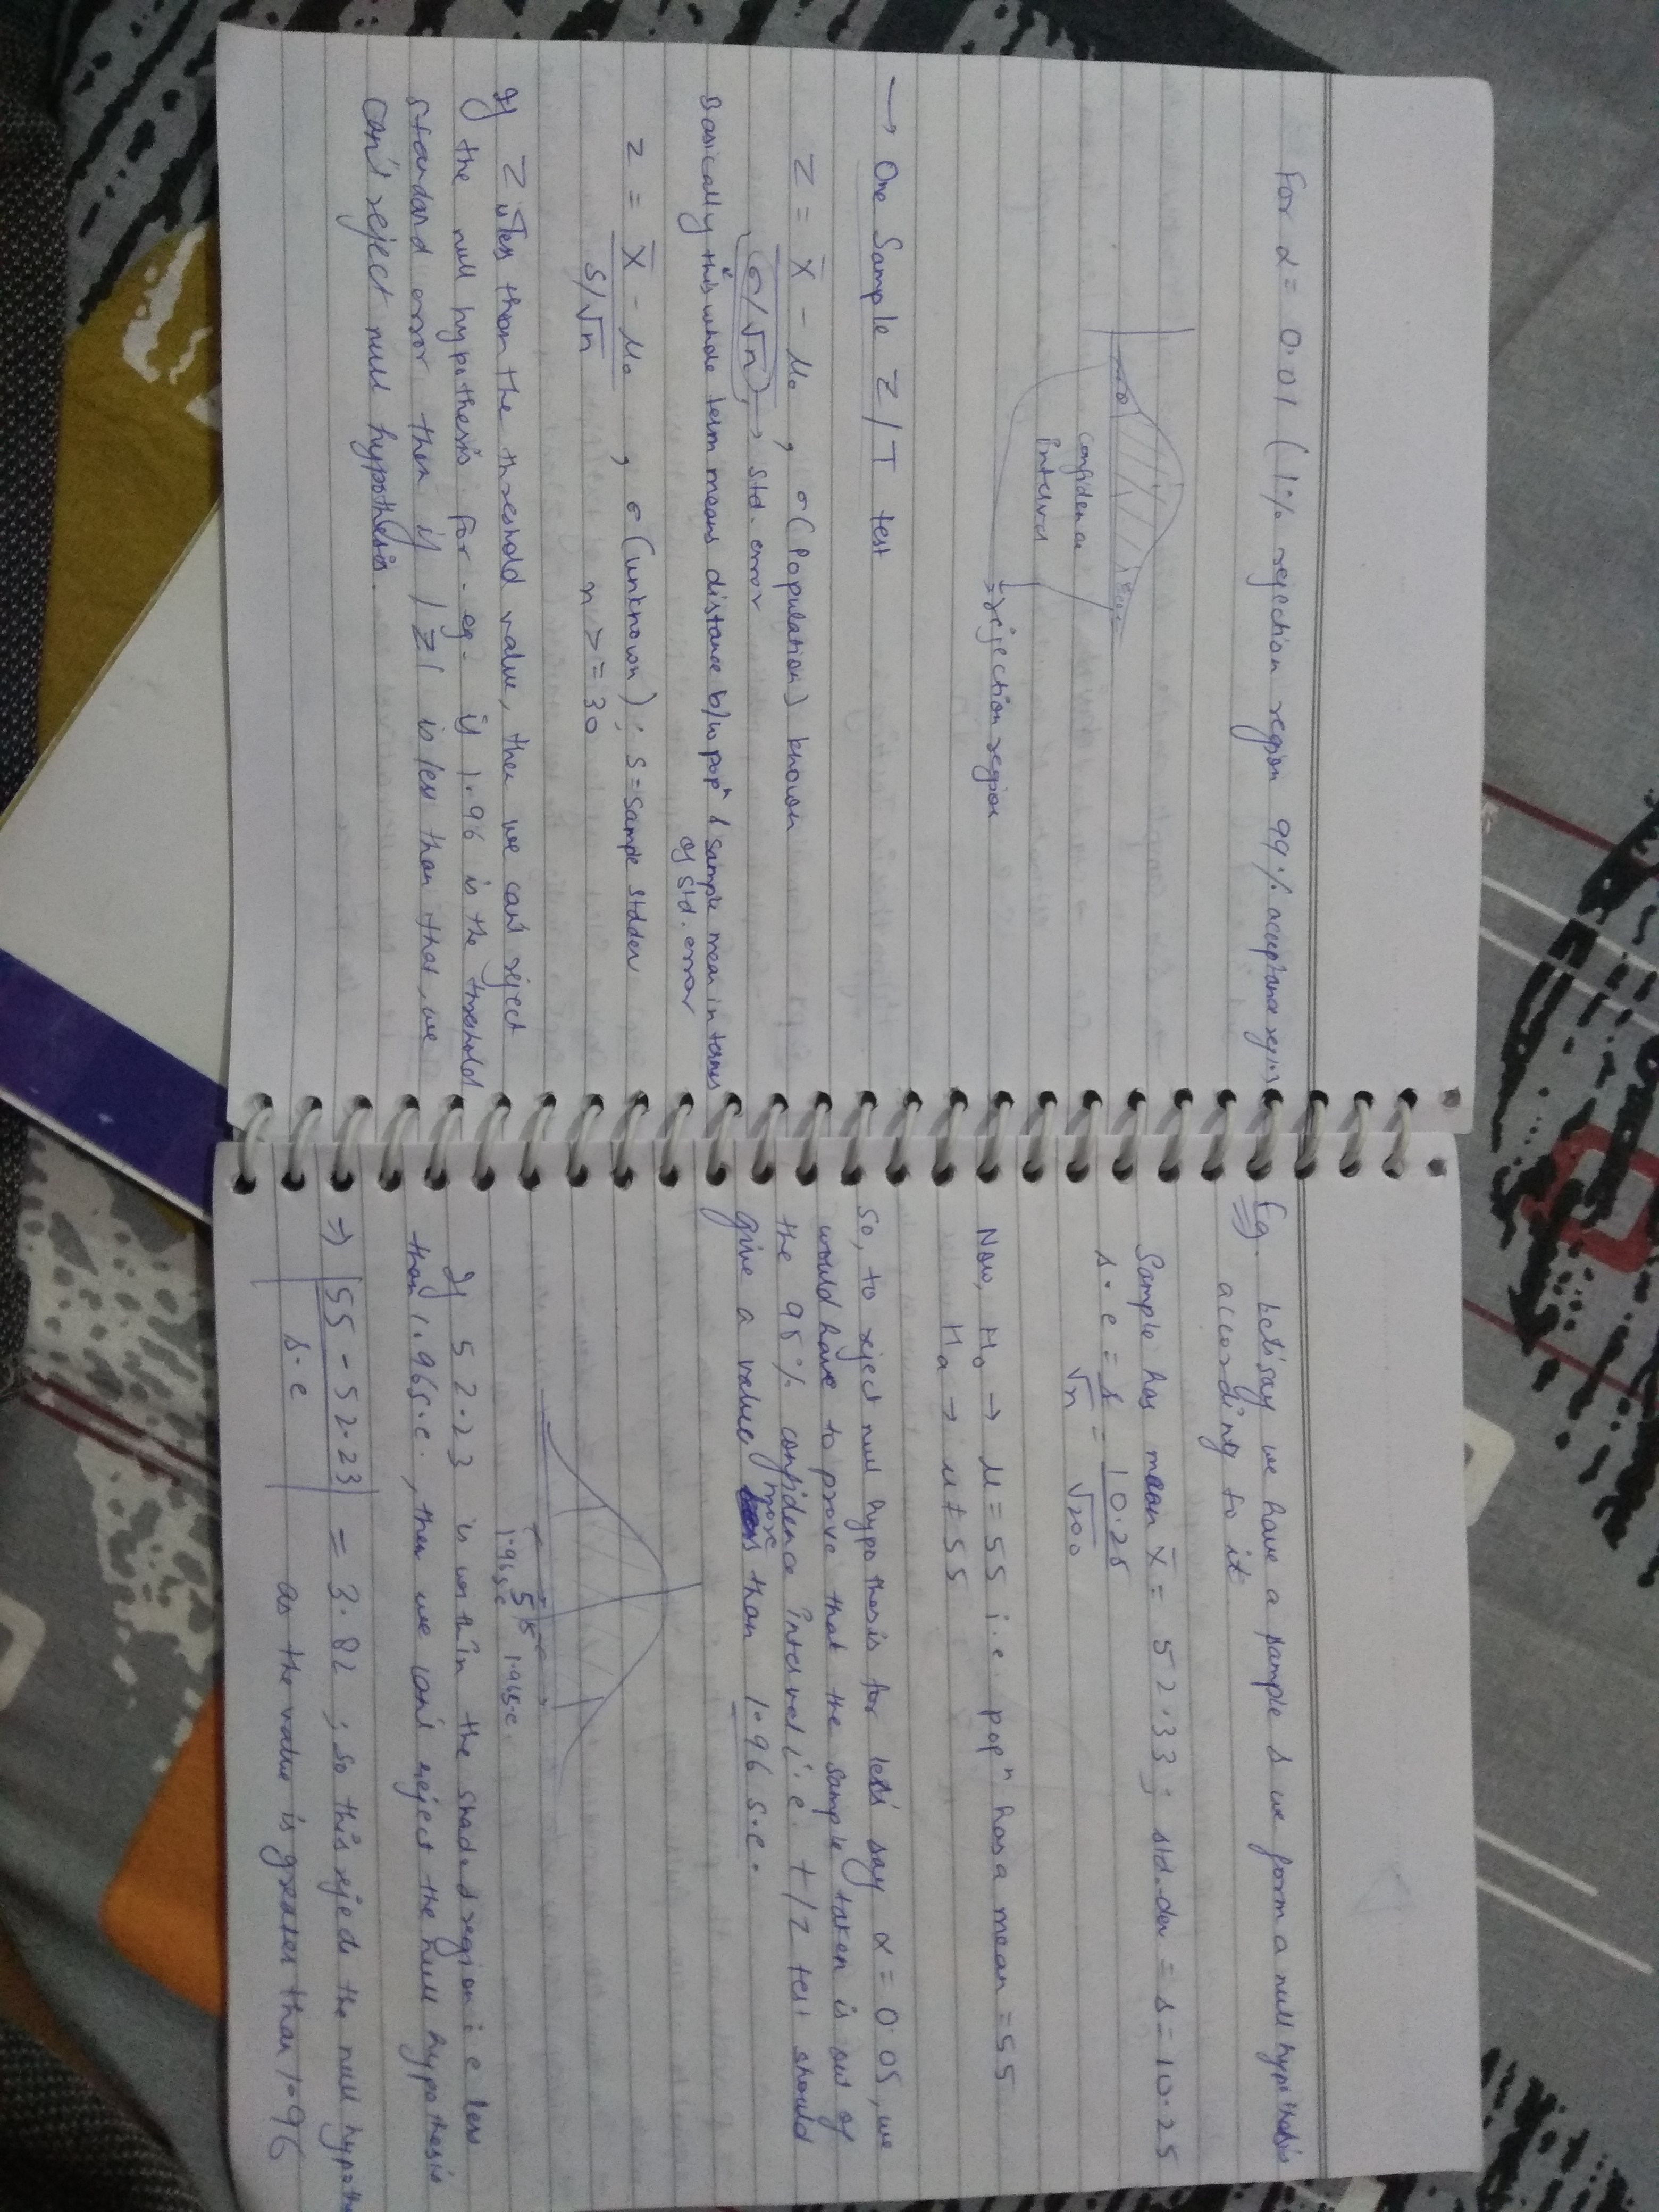 For α = 0.01 (1% rejection region 99% acceptance region
confidence
interval
→ rejection region
→ One Sample Z/T test
Z = x̄ - μ₀ , σ (Population) known
σ/√n → std. error
Basically this whole term means distance b/w popⁿ & sample mean in terms
of std. error
Z = x̄ - μ₀ , σ (unknown); s = sample stddev
s/√n n >= 30
If Z is less than the threshold value, then we can't reject
the null hypothesis for . eg. if 1.96 is the threshold
standard error then if |Z| is less than that, we
can't reject null hypothesis.
Eg. Let's say we have a sample & we form a null hypothesis
according to it
Sample has mean x̄ = 52.33; std. dev = s = 10.25
s.e = s = 10.25
√n √200
Now, H₀ → μ = 55 i.e popⁿ has a mean = 55
Hₐ → μ ≠ 55
So, to reject null hypothesis for let's say α = 0.05, we
would have to prove that the sample taken is out of
the 95% confidence interval i.e. t/z test should
give a value more than 1.96 s.e.
55
1.96s.e 1.96s.e.
If 52.23 is within the shaded region i.e less
than 1.96s.e., then we can't reject the null hypothesis
⇒ |55 - 52.23| = 3.82 ; so this rejects the null
s.e as the value is greater than 1.96